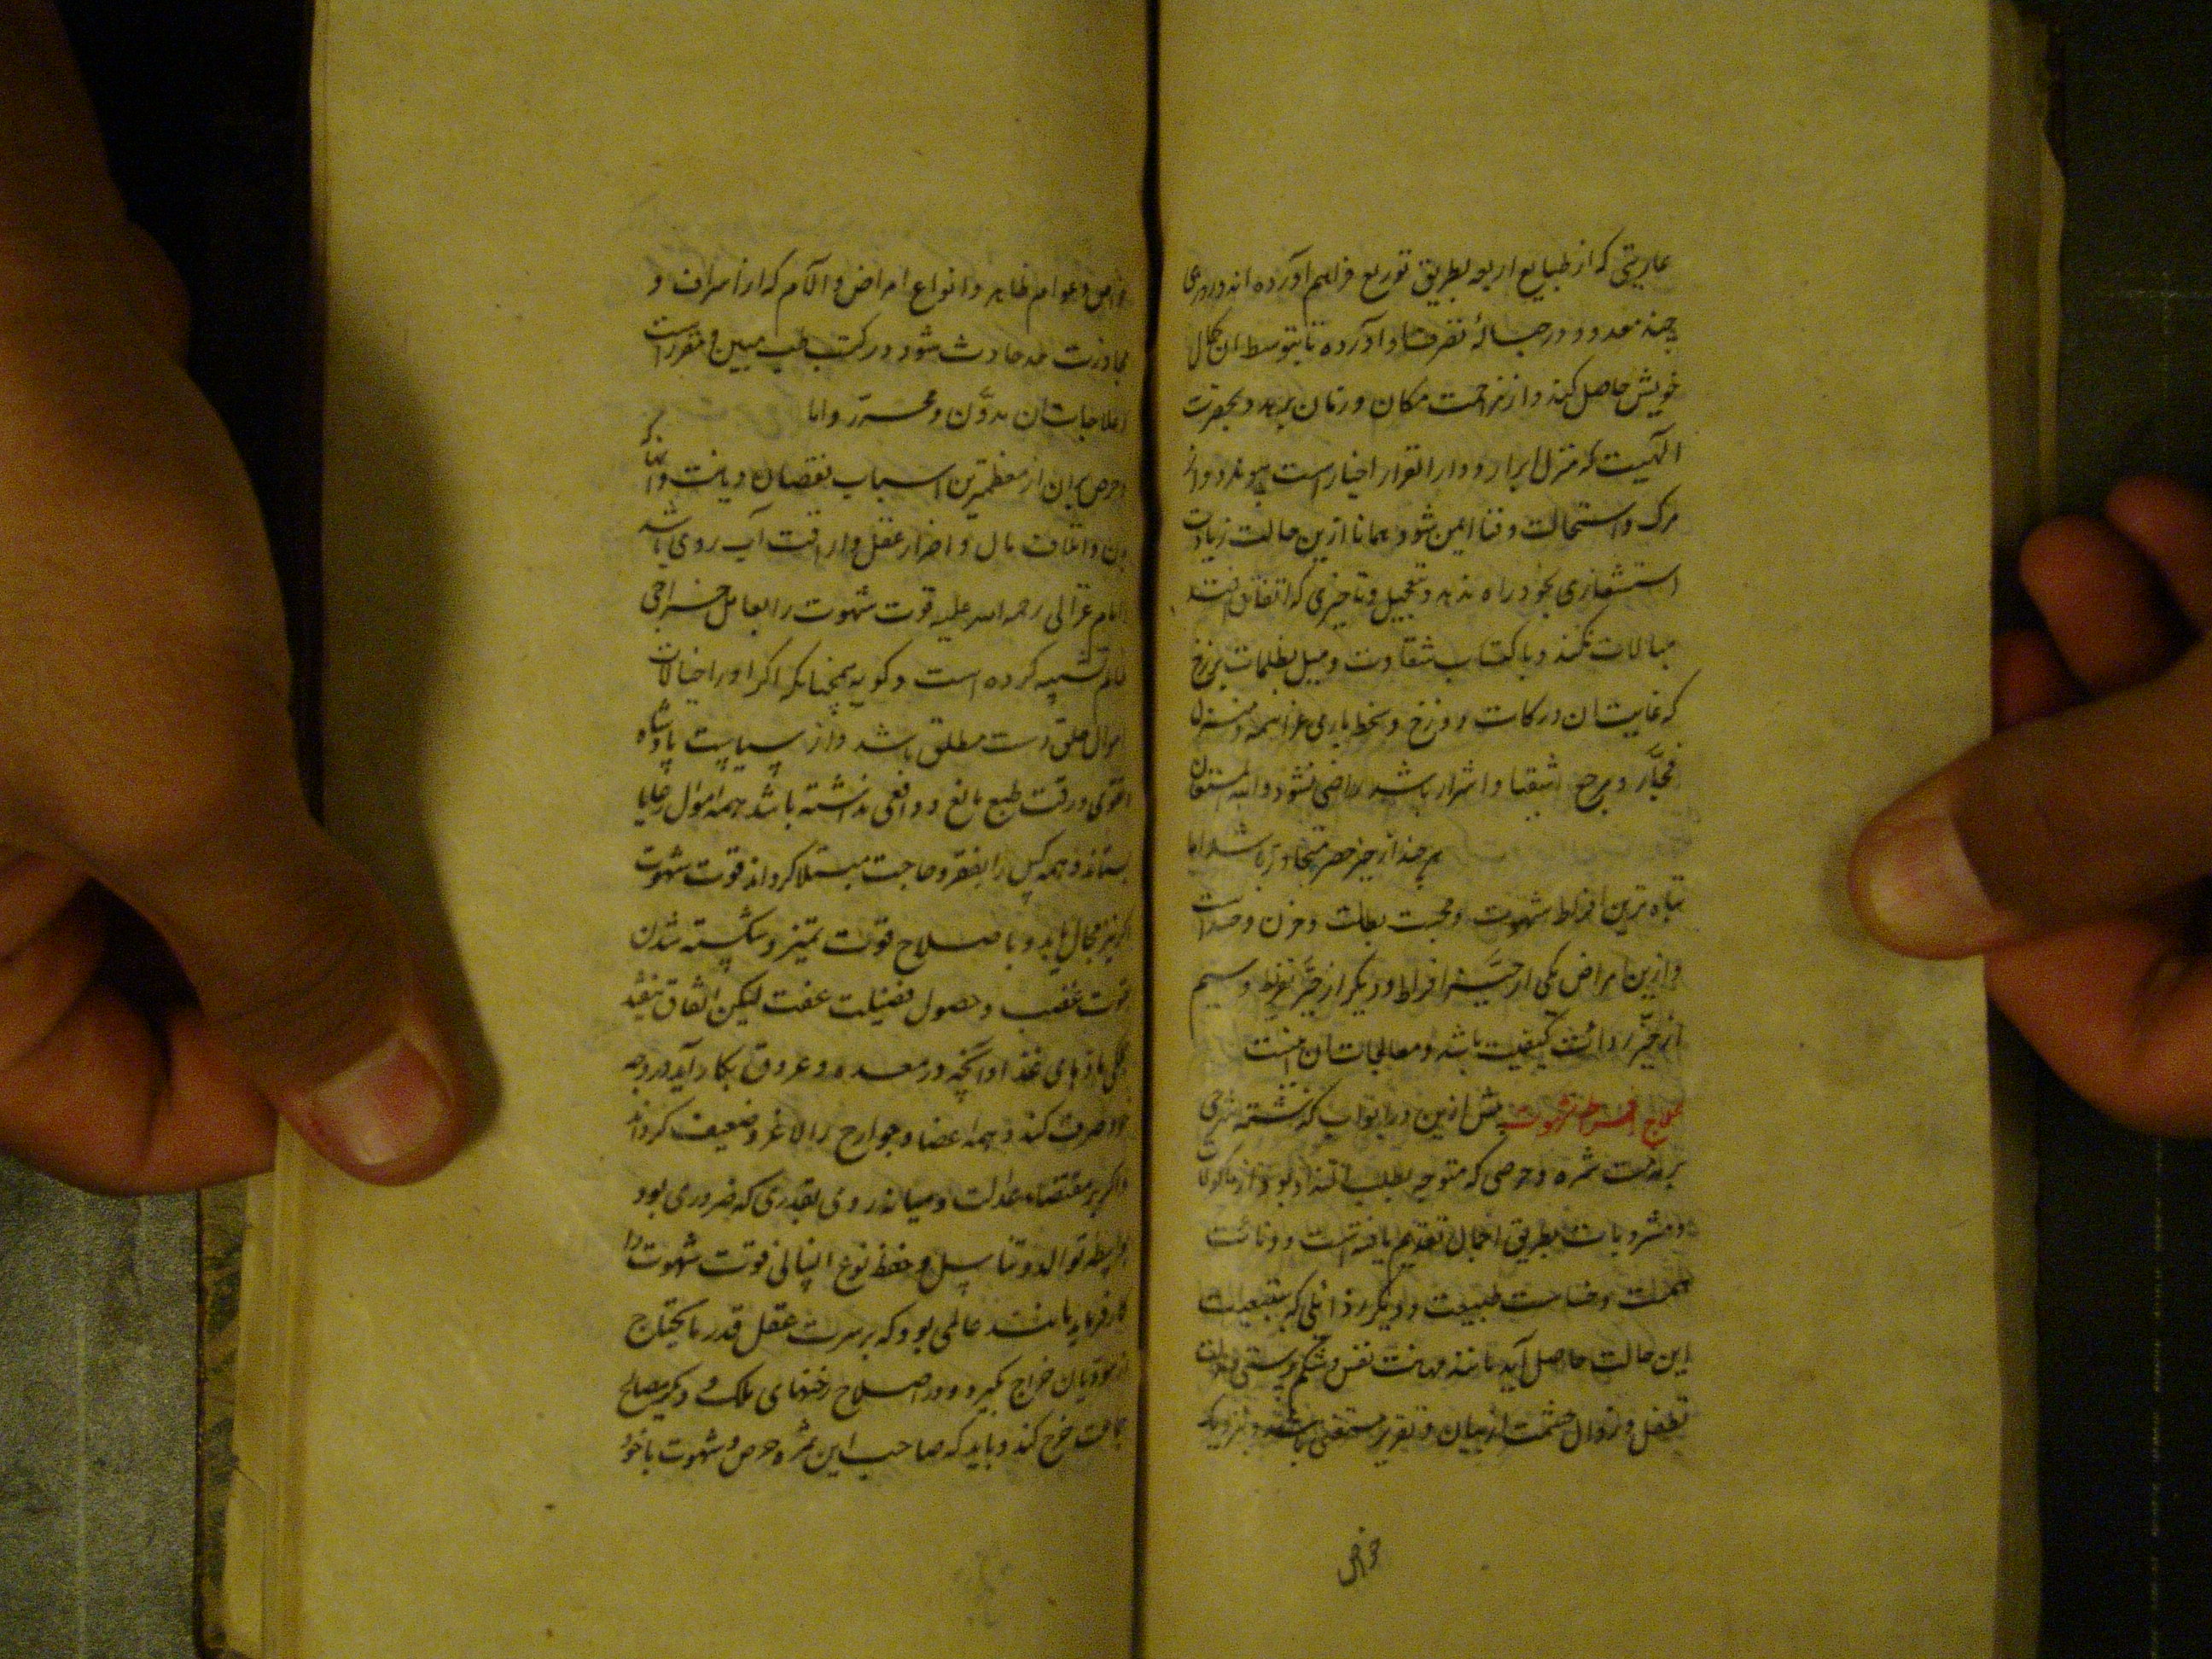 عاریتی که از طبایع اربعه بطریق توزیع فراهم آورده اند و روزی
چند معدود در حباله تصرف او آورده تا بتوسط آن کمال
خویش حاصل کند و از مزاحمت مکان و زمان برهد و بحضرت
الهیت که منزل ابرار و دار القرار اخیار است پیوندد و از
مرک و استحالت و فنا ایمن شود همانا ازین حالت زیادت
استشعاری بخود راه ندهد و بتعجیل و تاخیری که اتفاق افتد
مبالات نکند و باکتساب شقاوت و میل بظلمات برزخ
که غایت آن درکات دوزخ و سخط باری عز اسمه و منزل
فجار و مرجع اشقیا و اشرار باشد راضی نشود والله المستعان
هر چند از حیز حصر متجاوز باشد اما
تباه ترین افراط شهوت و محبت بطالت و حزن و حسد است
و ازین امراض یکی از حیز افراط و دیگر از حیز تفریط و سیم
از حیز رداءت کیفیت باشد و معالجات آن اینست
علاج افراط شهوت پیش ازین در ابواب گذشته شرحی
بر مذمت شره و حرصی که متوجه بطلب التذاذ بود از ماکولات
و مشروبات بطریق اجمال تقدیم یافته است و دنائت
همت و خساست طبیعت و دیگر رذائلی که بتبعیت
این حالت حاصل آید مانند مهانت نفس و شکم پرستی و مذلت
تطفل و زوال حشمت از بیان و تقریر مستغنی باشد و نزدیک
خواص
خواص و عوام ظاهر و انواع امراض و آلام که از اسراف و
مجاوزت حد حادث شود در کتب طب مبین و مقرر است
و علاجات آن مدون و محرر و اما
و حرص بران از معظمترین اسباب نقصان دیانت و انهاک
بدن و اتلاف مال و اضرار عقل و اراقت آب روی باشد
و امام غزالی رحمه الله علیه قوت شهوت را بعامل خراجی
ظالم تشبیه کرده است و کوید همچنانکه اگر او را در
اموال خلق دست مطلق باشد و از سیاست پادشاه
و تقوی و رقت طبع مانع و دافعی نداشته باشد همه اموال رعایا
بستاند و همه کس را بفقر و حاجت مبتلا کرداند قوت شهوت
اگر نیز مجال یابد و باصلاح قوت تمیز و شکسته شدن
قوت غضب و حصول فضیلت عفت تسکین اتفاق نیفتد
جملگی مادهای غذا و آنچه در معده و عروق بکار آید در وجه
خود صرف کند و همه اعضا و جوارح را لاغر و ضعیف کرداند
و اگر بر مقتضاء عدالت و میانه روی بقدری که ضروری بود
بواسطه توالد و تناسل و حفظ نوع انسانی قوت شهوت را
کار فرماید مانند عاملی بود که بر سیرت عقل قدر مایحتاج
از مودیان خراج بگیرد و در اصلاح رخنهای ملک و دیگر مصالح
جماعت خرج کند و باید که صاحب این شره و حرص و شهوت با خود